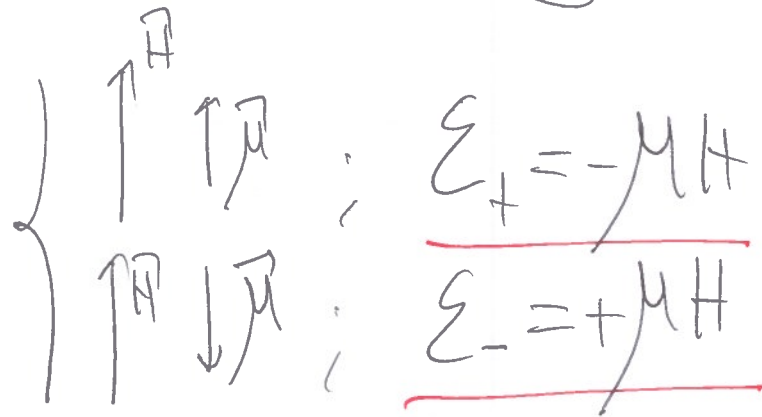 { ↑ H⃗ ↑ μ⃗ ; ℰ₊ = -μH
↑ H⃗ ↓ μ⃗ ; ℰ₋ = +μH